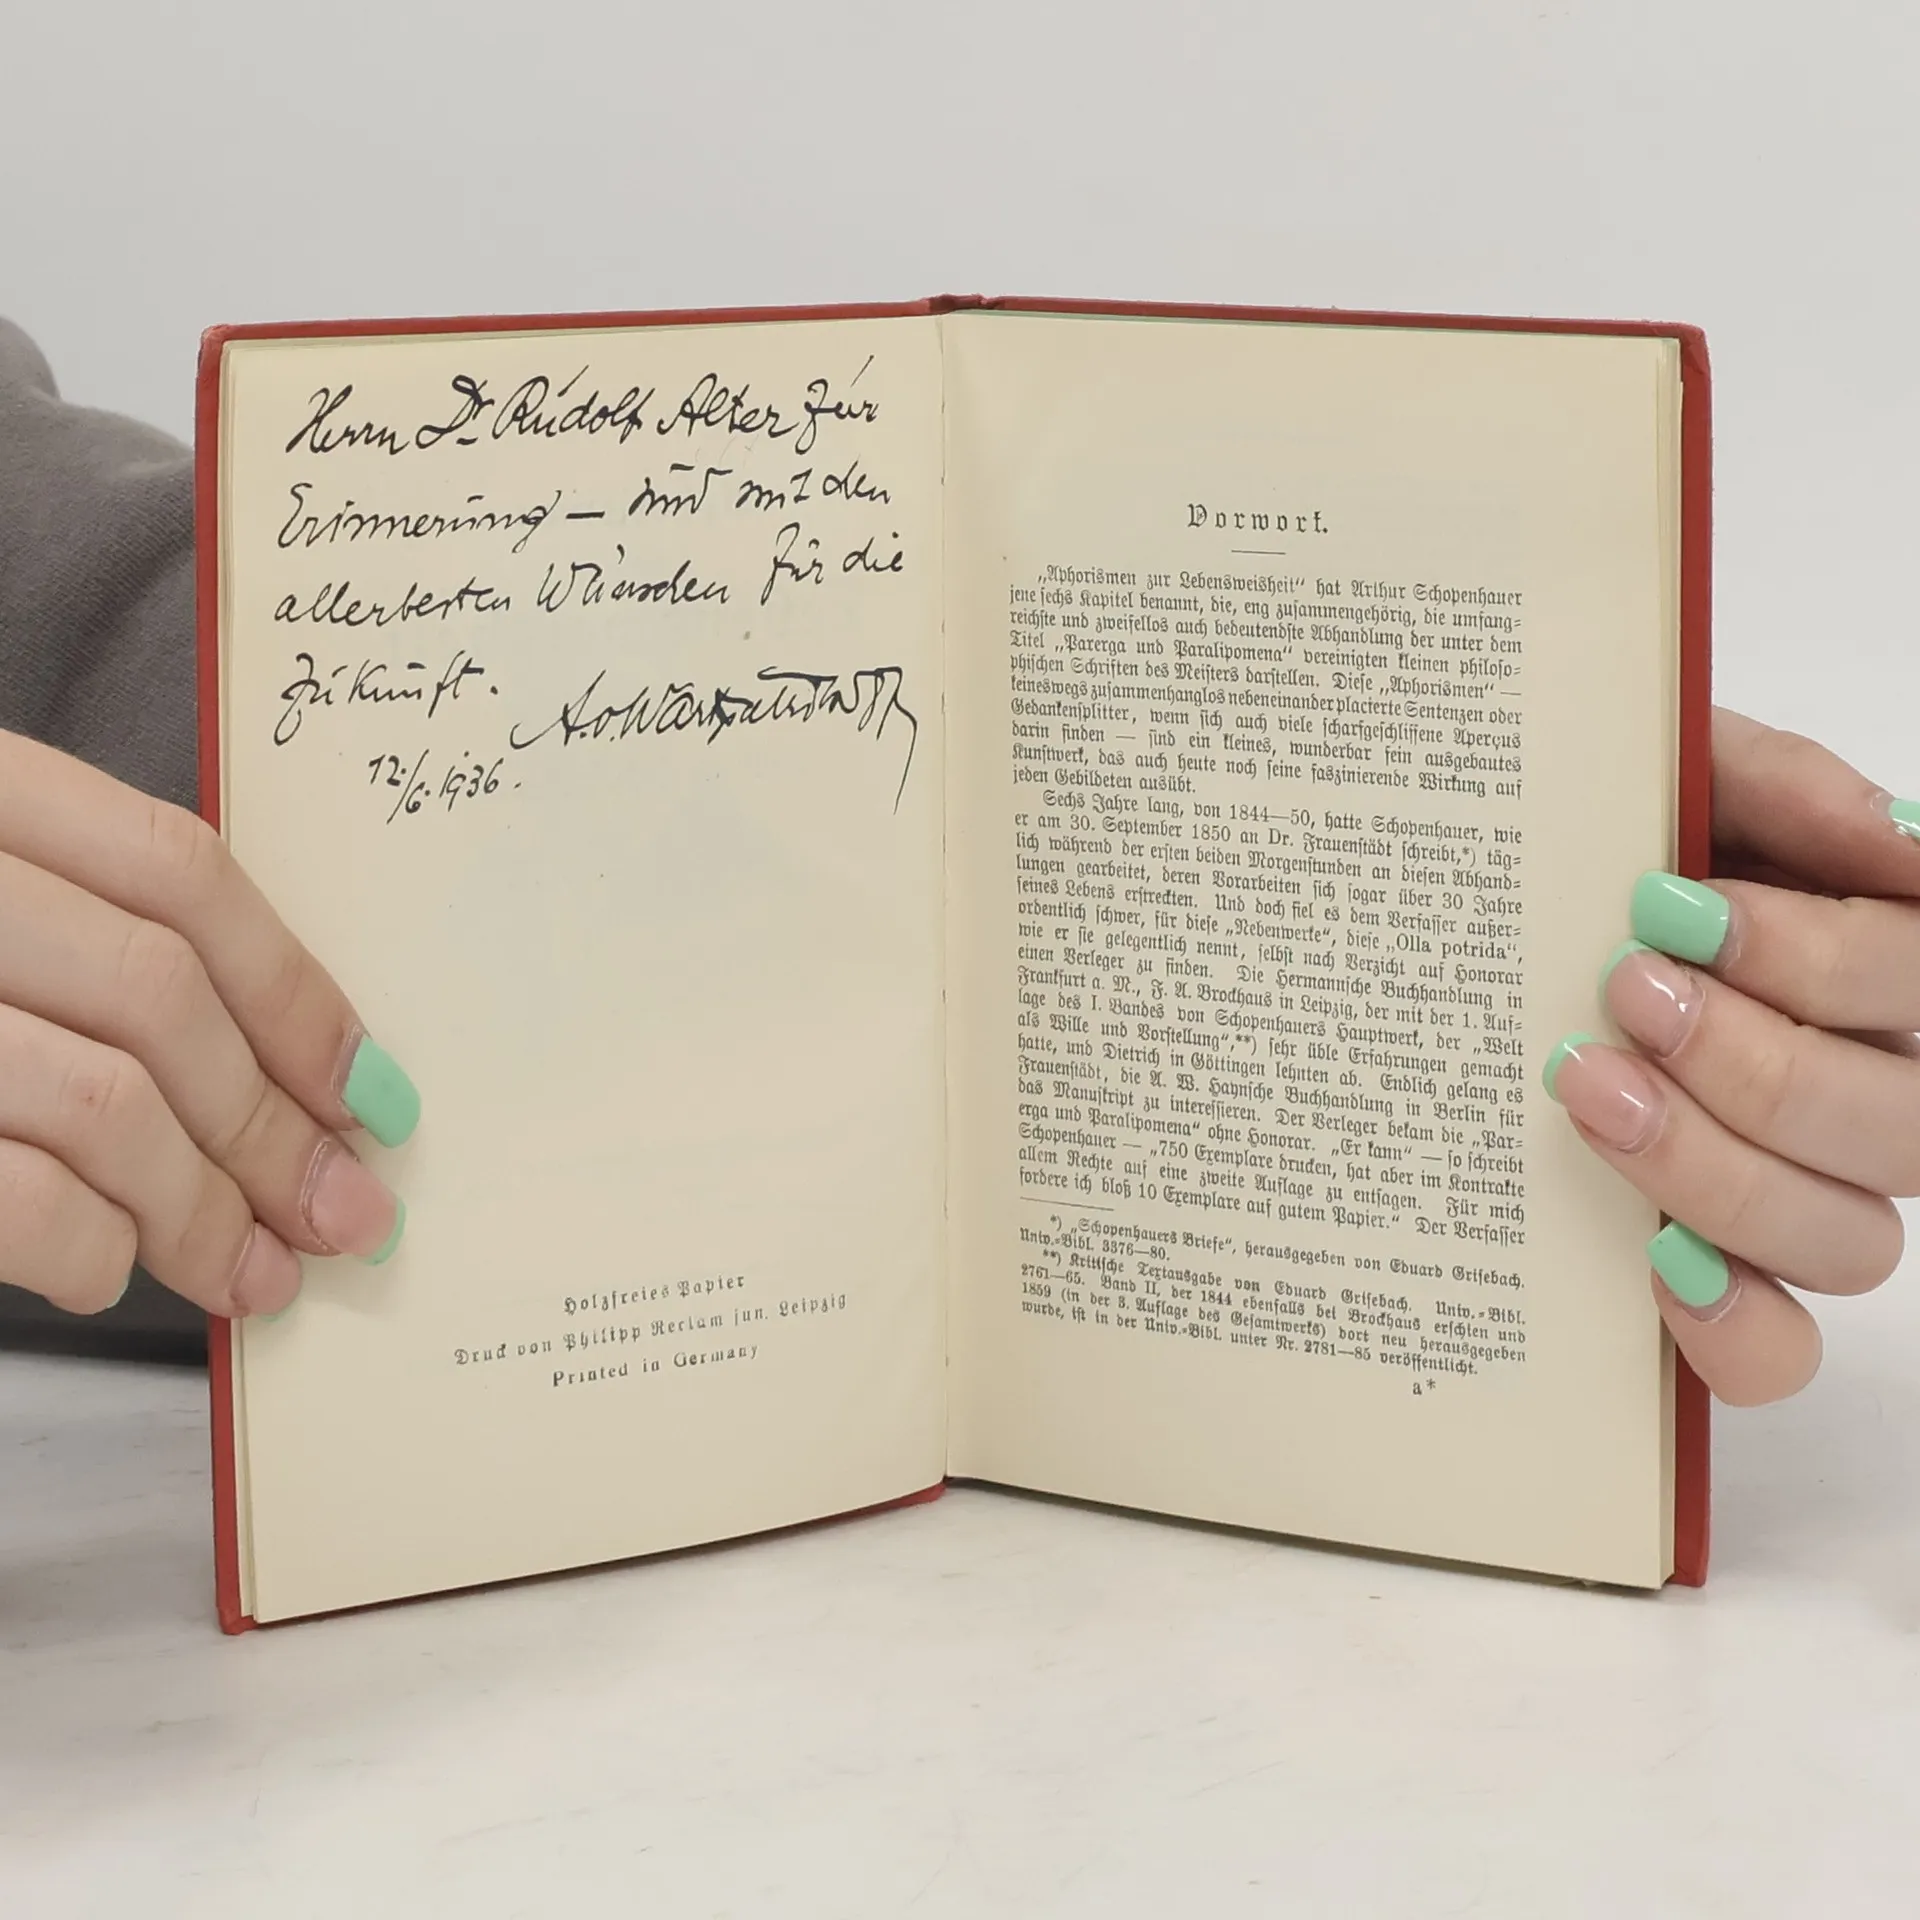 Herrn Dr Rudolf Alter zur
Erinnerung — und mit den
allerbesten Wünschen für die
Zukunft.
12./6. 1936.
Holzfreies Papier
Druck von Philipp Reclam jun. Leipzig
Printed in Germany
Vorwort.
„Aphorismen zur Lebensweisheit“ hat Arthur Schopenhauer
jene sechs Kapitel benannt, die, eng zusammengehörig, die umfang-
reichste und zweifellos auch bedeutendste Abhandlung der unter dem
Titel „Parerga und Paralipomena“ vereinigten kleinen philoso-
phischen Schriften des Meisters darstellen. Diese „Aphorismen“ —
keineswegs zusammenhanglos nebeneinander placierte Sentenzen oder
Gedankensplitter, wenn sich auch viele scharfgeschliffene Aperçus
darin finden — sind ein kleines, wunderbar fein ausgebautes
Kunstwerk, das auch heute noch seine faszinierende Wirkung auf
jeden Gebildeten ausübt.
Sechs Jahre lang, von 1844—50, hatte Schopenhauer, wie
er am 30. September 1850 an Dr. Frauenstädt schreibt,*) täg-
lich während der ersten beiden Morgenstunden an diesen Abhand-
lungen gearbeitet, deren Vorarbeiten sich sogar über 30 Jahre
seines Lebens erstreckten. Und doch fiel es dem Verfasser außer-
ordentlich schwer, für diese „Nebenwerke“, diese „Olla potrida“,
wie er sie gelegentlich nennt, selbst nach Verzicht auf Honorar
einen Verleger zu finden. Die Hermannsche Buchhandlung in
Frankfurt a. M., F. A. Brockhaus in Leipzig, der mit der 1. Auf-
lage des I. Bandes von Schopenhauers Hauptwerk, der „Welt
als Wille und Vorstellung“,**) sehr üble Erfahrungen gemacht
hatte, und Dietrich in Göttingen lehnten ab. Endlich gelang es
Frauenstädt, die A. W. Haynsche Buchhandlung in Berlin für
das Manuskript zu interessieren. Der Verleger bekam die „Par-
erga und Paralipomena“ ohne Honorar. „Er kann“ — so schreibt
Schopenhauer — „750 Exemplare drucken, hat aber im Kontrakte
allem Rechte auf eine zweite Auflage zu entsagen. Für mich
fordere ich bloß 10 Exemplare auf gutem Papier.“ Der Verfasser
*) „Schopenhauers Briefe“, herausgegeben von Eduard Grisebach.
Univ.-Bibl. 3376—80.
**) Kritische Textausgabe von Eduard Grisebach. Univ.-Bibl.
2761—65. Band II, der 1844 ebenfalls bei Brockhaus erschien und
1859 (in der 3. Auflage des Gesamtwerks) dort neu herausgegeben
wurde, ist in der Univ.-Bibl. unter Nr. 2781—85 veröffentlicht.
a*